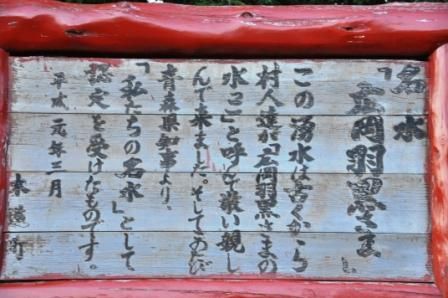 名水
「広岡羽黒さま」
この湧水は古くから
村人達が「広岡羽黒さまの
水コ」と呼んで装い親し
んで来ました。そしてこのたび
青森県知事より、
「私たちの名水」として
認定を受けたものです。
平成元年三月
木造町